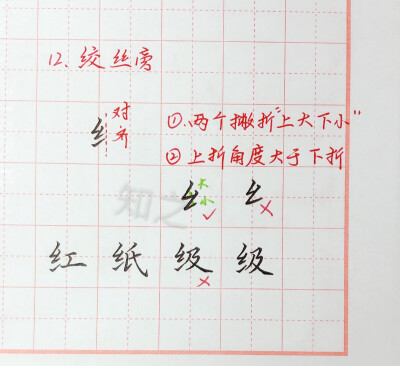 12. 绞丝旁
对齐
纟
①. 两个撇折"上大下小"
② 上折角度大于下折
纟 大 小 ✓ 纟 ×
知之
红 纸 级 × 级